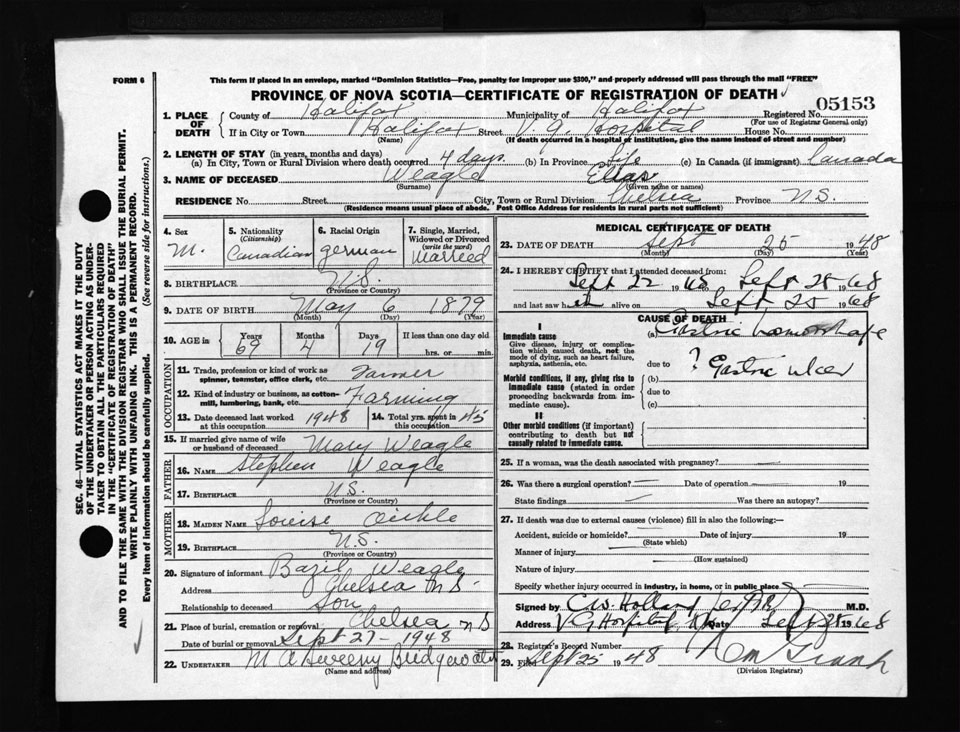 FORM 6
This form if placed in an envelope, marked "Dominion Statistics—Free, penalty for improper use $300," and properly addressed will pass through the mail "FREE"
PROVINCE OF NOVA SCOTIA—CERTIFICATE OF REGISTRATION OF DEATH
05153
1. PLACE OF DEATH
County of Halifax Municipality of Halifax Registered No.
(For use of Registrar General only)
If in City or Town Halifax Street V. G. Hospital House No.
(Name) (If death occurred in a hospital or institution, give the name instead of street and number)
2. LENGTH OF STAY (in years, months and days)
(a) In City, Town or Rural Division where death occurred 4 days. (b) In Province Life (c) In Canada (if immigrant) Canada
3. NAME OF DECEASED Weagle Elias
(Surname) (Given name or names)
RESIDENCE No. Street City, Town or Rural Division Chelsea Province N.S.
(Residence means usual place of abode. Post Office Address for residents in rural parts not sufficient)
SEC. 46—VITAL STATISTICS ACT MAKES IT THE DUTY
OF THE UNDERTAKER OR PERSON ACTING AS UNDER-
TAKER TO OBTAIN ALL THE PARTICULARS REQUIRED
IN THE "CERTIFICATE OF REGISTRATION OF DEATH"
AND TO FILE THE SAME WITH THE DIVISION REGISTRAR WHO SHALL ISSUE THE BURIAL PERMIT.
WRITE PLAINLY WITH UNFADING INK. THIS IS A PERMANENT RECORD.
Every item of information should be carefully supplied. (See reverse side for instructions.)
4. Sex M.
5. Nationality (Citizenship) Canadian
6. Racial Origin German
7. Single, Married, Widowed or Divorced (write the word) Married
8. BIRTHPLACE N.S.
(Province or Country)
9. DATE OF BIRTH May 6 1879
(Month) (Day) (Year)
10. AGE in Years Months Days If less than one day old
69 4 19 hrs. or min.
OCCUPATION
11. Trade, profession or kind of work as Farmer
spinner, teamster, office clerk, etc.
12. Kind of industry or business, as cotton- Farming
mill, lumbering, bank, etc.
13. Date deceased last worked at this occupation 1948
14. Total yrs. spent in this occupation 45
15. If married give name of wife or husband of deceased Mary Weagle
FATHER
16. NAME Stephen Weagle
17. BIRTHPLACE N.S.
(Province or Country)
MOTHER
18. MAIDEN NAME Louise Oickle
19. BIRTHPLACE N.S.
(Province or Country)
20. Signature of informant Bazil Weagle
Address Chelsea N S
Relationship to deceased Son
21. Place of burial, cremation or removal Chelsea N S
Date of burial or removal Sept 27 - 1948
22. UNDERTAKER M A Sweeny Bridgewater
(Name and address)
MEDICAL CERTIFICATE OF DEATH
23. DATE OF DEATH Sept 25 1948
(Month) (Day) (Year)
24. I HEREBY CERTIFY that I attended deceased from:
Sept 22 1948 Sept 25 1948
and last saw h alive on Sept 25 1948
CAUSE OF DEATH
I
Immediate cause
Give disease, injury or complication which caused death, not the mode of dying, such as heart failure, asphyxia, asthenia, etc.
(a) Gastric haemorrhage
due to ? Gastric ulcer
Morbid conditions, if any, giving rise to immediate cause (stated in order proceeding backwards from immediate cause).
(b)
due to
(c)
II
Other morbid conditions (if important) contributing to death but not causally related to immediate cause.
25. If a woman, was the death associated with pregnancy?
26. Was there a surgical operation? Date of operation 19
State findings Was there an autopsy?
27. If death was due to external causes (violence) fill in also the following:—
Accident, suicide or homicide? Date of injury 19
(State which)
Manner of injury
(How sustained)
Nature of injury
Specify whether injury occurred in industry, in home, or in public place
Signed by C. W. Holland M.D.
Address V G Hospital, Date Sept 25 1948
28. Registrar's Record Number
29. Filed Sept 25 1948
(Division Registrar)